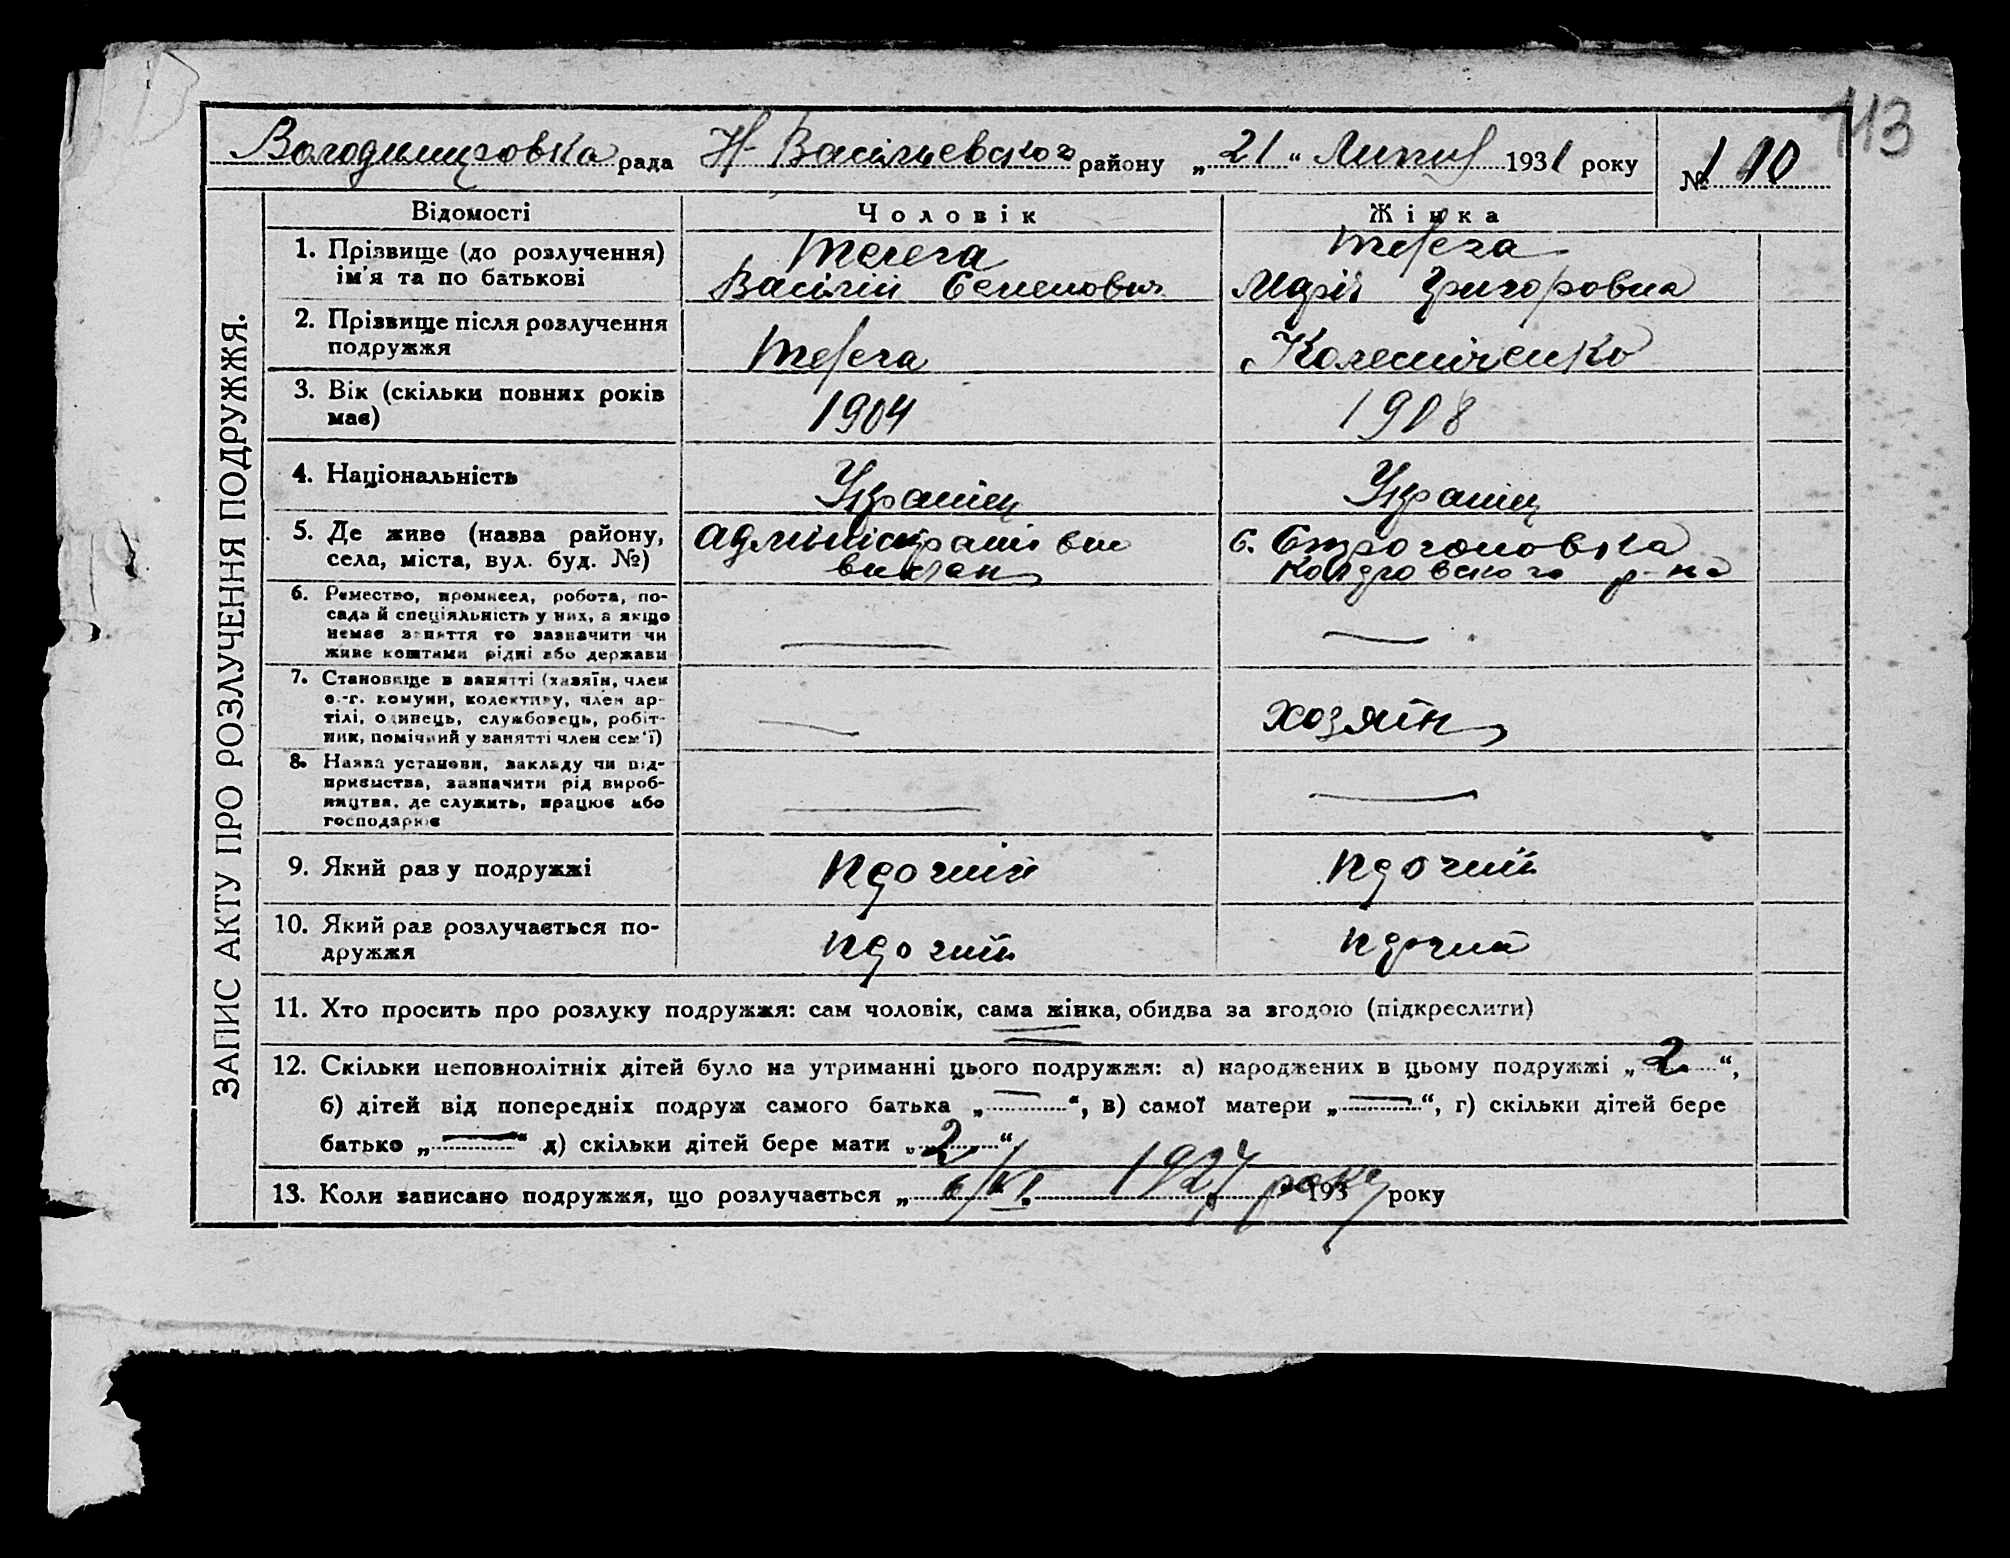 113
Володимировка рада Н-Васільевского району „21“ Липня 1931 року
№ 110
ЗАПИС АКТУ ПРО РОЗЛУЧЕННЯ ПОДРУЖЖЯ.
Відомості Чоловік Жінка
1. Прізвище (до розлучення) ім'я та по батькові
Телега
Васілій Семенович
Телега
Марія Григоровна
2. Прізвище після розлучення подружжя
Телега
Колесніченко
3. Вік (скільки повних років має)
1904
1908
4. Національність
Українец
Українец
5. Де живе (назва району, села, міста, вул. буд. №)
адміністраті вно
вислан
с. Строгоновка
р-на
6. Ремество, промисел, робота, по-
сада й спеціяльність у них, а якщо
немає заняття то зазначити чи
живе коштами рідні або держави
7. Становище в занятті (хазяїн, член
с.-г. комуни, колективу, член ар-
тілі, одинець, службовець, робіт-
ник, помічний у занятті член сем'ї)
хозяйн
8. Назва установи, закладу чи під-
приємства, зазначити рід вироб-
ництва, де служить, працює або
господарює
9. Який раз у подружжі
10. Який раз розлучається по-
дружжя
11. Хто просить про розлуку подружжя: сам чоловік, сама жінка, обидва за згодою (підкреслити)
12. Скільки неповнолітніх дітей було на утриманні цього подружжя: а) народжених в цьому подружжі „2“,
б) дітей від попередніх подруж самого батька „—“, в) самої матери „—“, г) скільки дітей бере
батько „—“ д) скільки дітей бере мати „2“
13. Коли записано подружжя, що розлучається „6/VI 1927 року 193 року